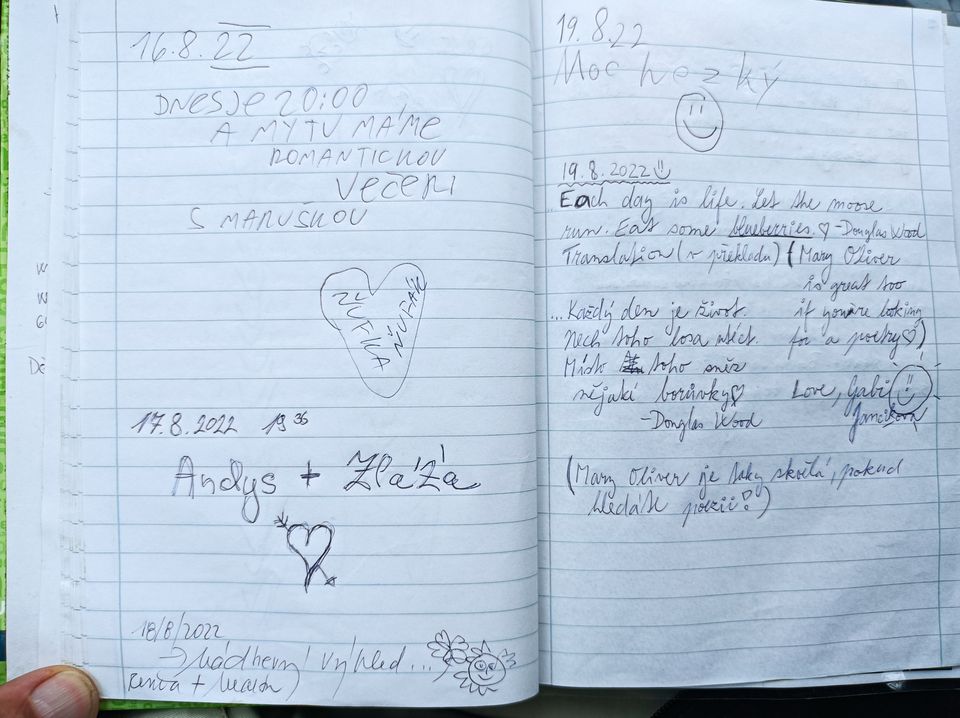 16.8.22
DNES JE 20:00
A MY TU MÁME
ROMANTICKOU
VEČEŘI
S MARUŠKOU
ŽUFKA
ŇUFÁK
17.8.2022 19 36
Andys + Zlázá
18/8/2022
→ Nádherný výhled...
19.8.22
Moc hezký
19.8.2022
Each day is life. Let the moose
run. Eat some blueberries. ♡ -Douglas Wood
Translation (v překladu)
(Mary Oliver
is great too
if you're looking
for a poetry ♡)
... Každý den je život.
Nech toho losa utéct.
Místo toho sněz
nějaké borůvky ♡
-Douglas Wood
Love, Gabi
Jančíková
(Mary Oliver je taky skvělá, pokud
hledáte poezii!)